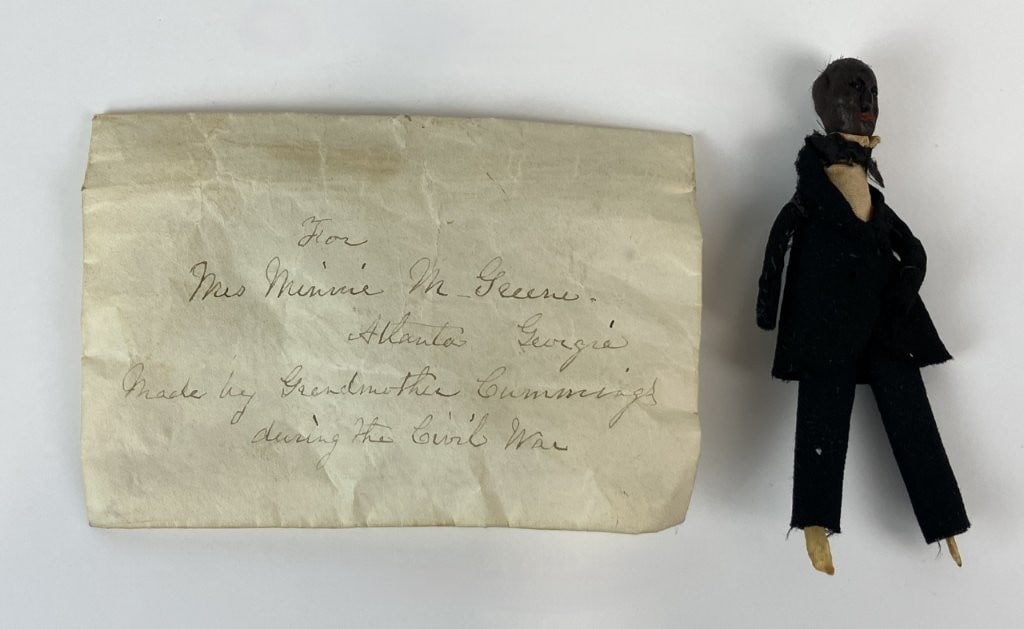 For
Mrs Minnie M. Greene.
Atlanta Georgia
Made by Grandmother Cummings
during the Civil War